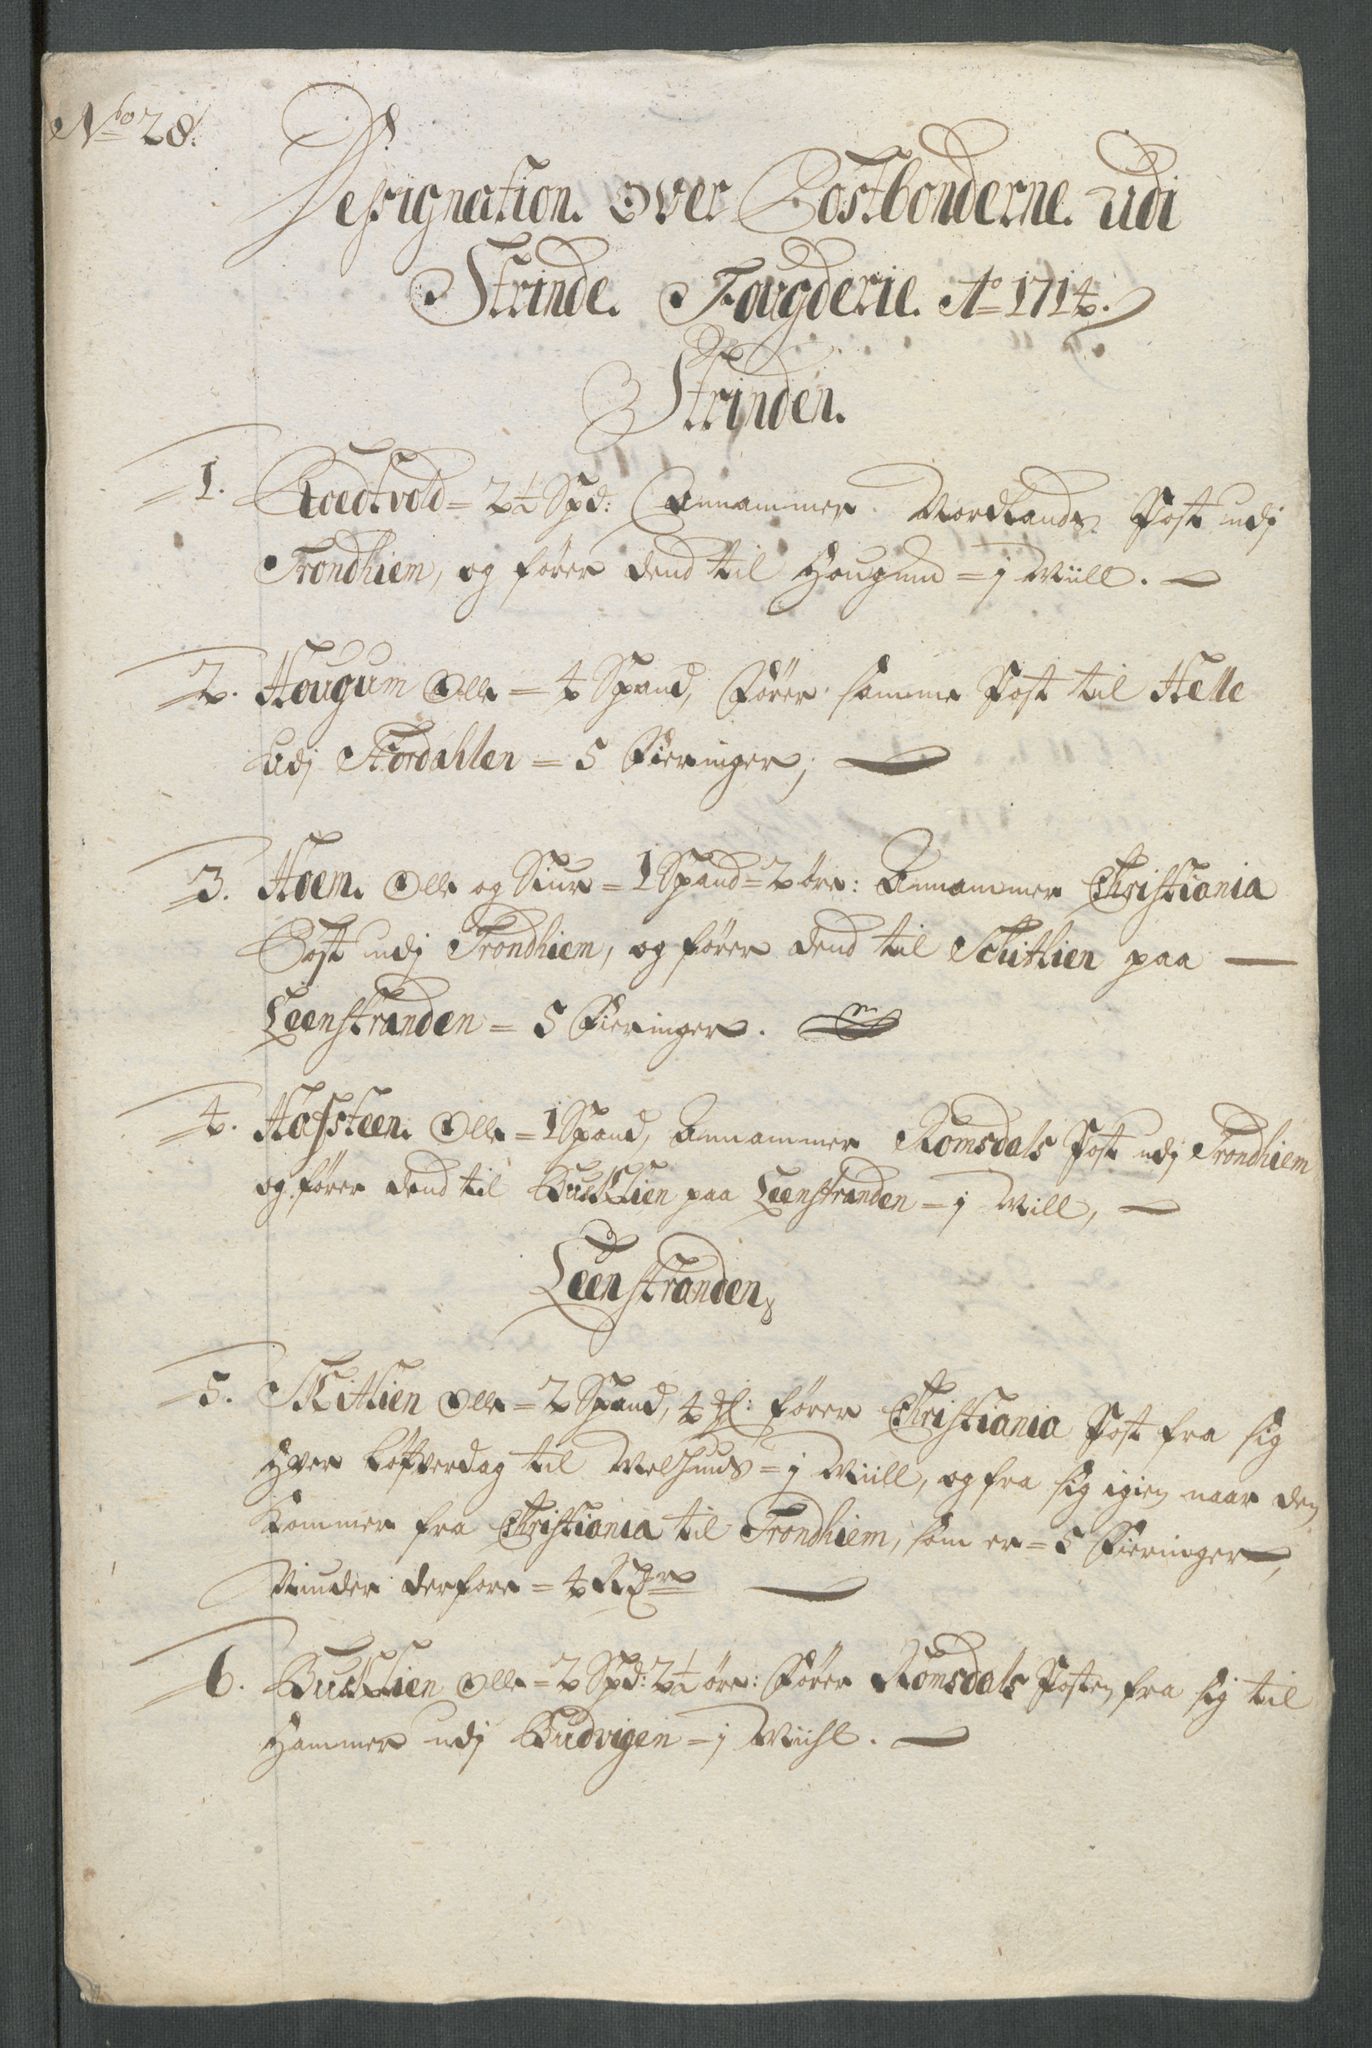 No 28.
Designation. Over Postbønderne. udi
Strinde. Fougderie. Ao 1714.
Strinden.
1. Roedtvold = 2½ Spd: Annammer Nordlands Post udj
Trondhiem, og fører dend til Hougum = j Miill.
2. Hougum Olle = 4 Spand, Fører samme Post til Helle
Udj Stordahlen = 5 Fieringer;
3. Hoem. Olle og Siur = 1 Spand = 2 öre: Annammer Christiania
Post udj Trondhiem, og fører dend til Schitlien paa
Leenstranden = 5 Fieringer.
4. Hafsteen. Olle = 1 Spand, Annammer Romsdals Post udj Trondhiem
og fører dend til Buschlien paa Leenstranden = j Mill,
Leenstranden
5. Skitlien Olle = 2 Spand, 4 fører Christiania Post fra sig
Hver Løfverdag til Melhuus = j Miill, og fra sig igien naar den
Kommer fra Christiania til Trondhiem, som er = 5 Fieringer,
Niuder derfore = 4 Rdr
6. Buschlien Olle = 2 Spd: 2½ öre: Fører Romsdals Posten fra sig til
Hammer udj Budvigen = j Miihl.